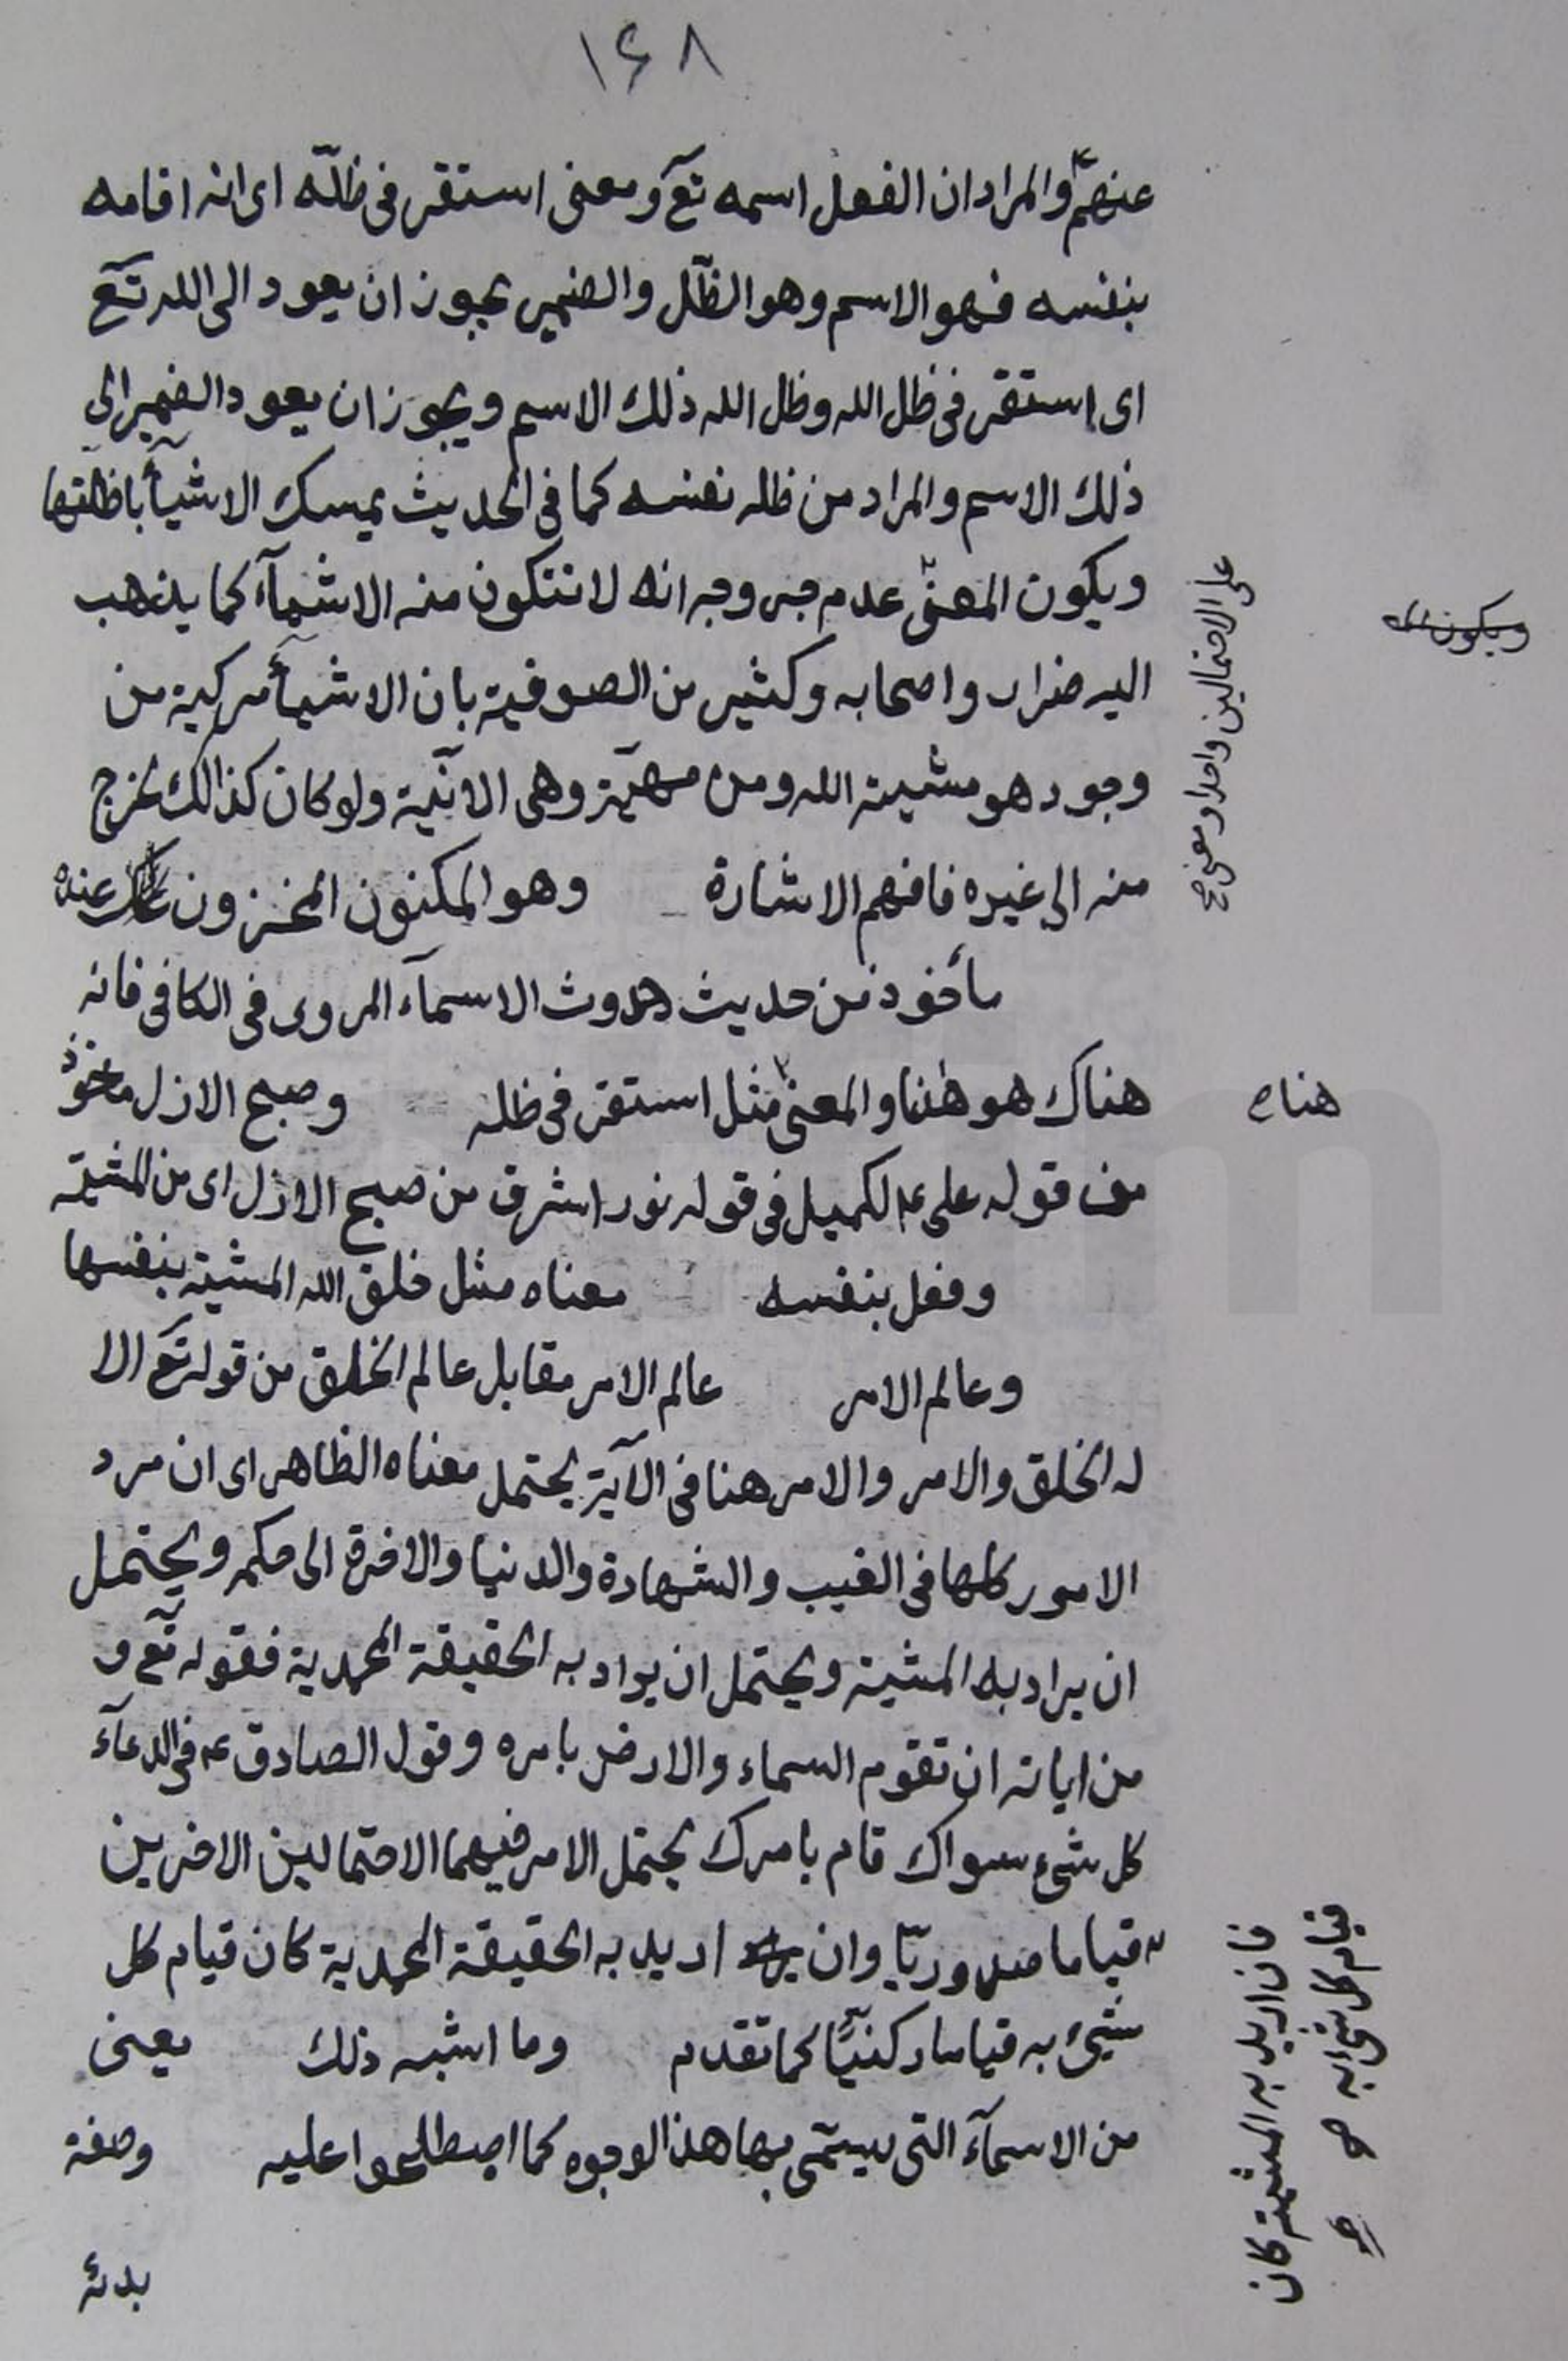 ١۶٨
عنهمٌ والمراد ان الفعل اسمه تعٓ ومعنى استقر فى ظلّه اى انه اقامه
بنفسه فهو الاسم وهو الظلّ والضمير يجوز ان يعود الى الله تعٓ
اى استقر فى ظل الله وظل الله ذلك الاسم ويجوز ان يعود الضمير الى
ذلك الاسم والمراد من ظله نفسه كما فى الحديث يمسك الاشيآء باظلّتها
ويكون المعنى عدم خروجه انه لا تتكون منه الاشيآء كما يذهب
اليه ضرار واصحابه وكثير من الصوفية بان الاشيآء مركبة من
وجود هو مشية الله ومن مهيّة وهى الانّية ولو كان كذالك لخرج
منه الى غيره فافهم الاشارة وهو المكنون المخزون عنده
مأخوذ من حديث حدوث الاسمآء المروى فى الكافى فانه
هناك هو هٰهنا والمعنى مثل استقر فى ظله وصبح الازل مأخوذ
من قوله على ع لكميل فى قوله نور اشرق من صبح الازل اى من المشية
وفعل بنفسه معناه مثل خلق الله المشية بنفسها
وعالم الامر عالم الامر مقابل عالم الخلق من قوله تعٓ الا
له الخلق والامر والامر هنا فى الآية يحتمل معناه الظاهر اى ان مرد
الامور كلها فى الغيب والشهادة والدنيا والاخرة الى حكمه ويحتمل
ان يراد به المشية ويحتمل ان يراد به الحقيقة المحمدية فقوله تعٓ و
من اياته ان تقوم السماء والارض بامره وقول الصادق ع فى الدعآء
كل شىء سواك قام بامرك يحتمل الامر فيهما الاحتمالين الاخرين
قياما صدوريّا وان اريد به الحقيقة المحمدية كان قيام كل
شيئ به قياما ركنيّا كما تقدم وما اشبه ذلك يعنى
من الاسمآء التى يسمّى بها هذا الوجوه كما اصطلحوا عليه وصفة
بدئه
ويكون
على الاحتمالين واحدا ومعنى صح
هناه
فان اريد به المشية كان
قيام كل شئ به صح